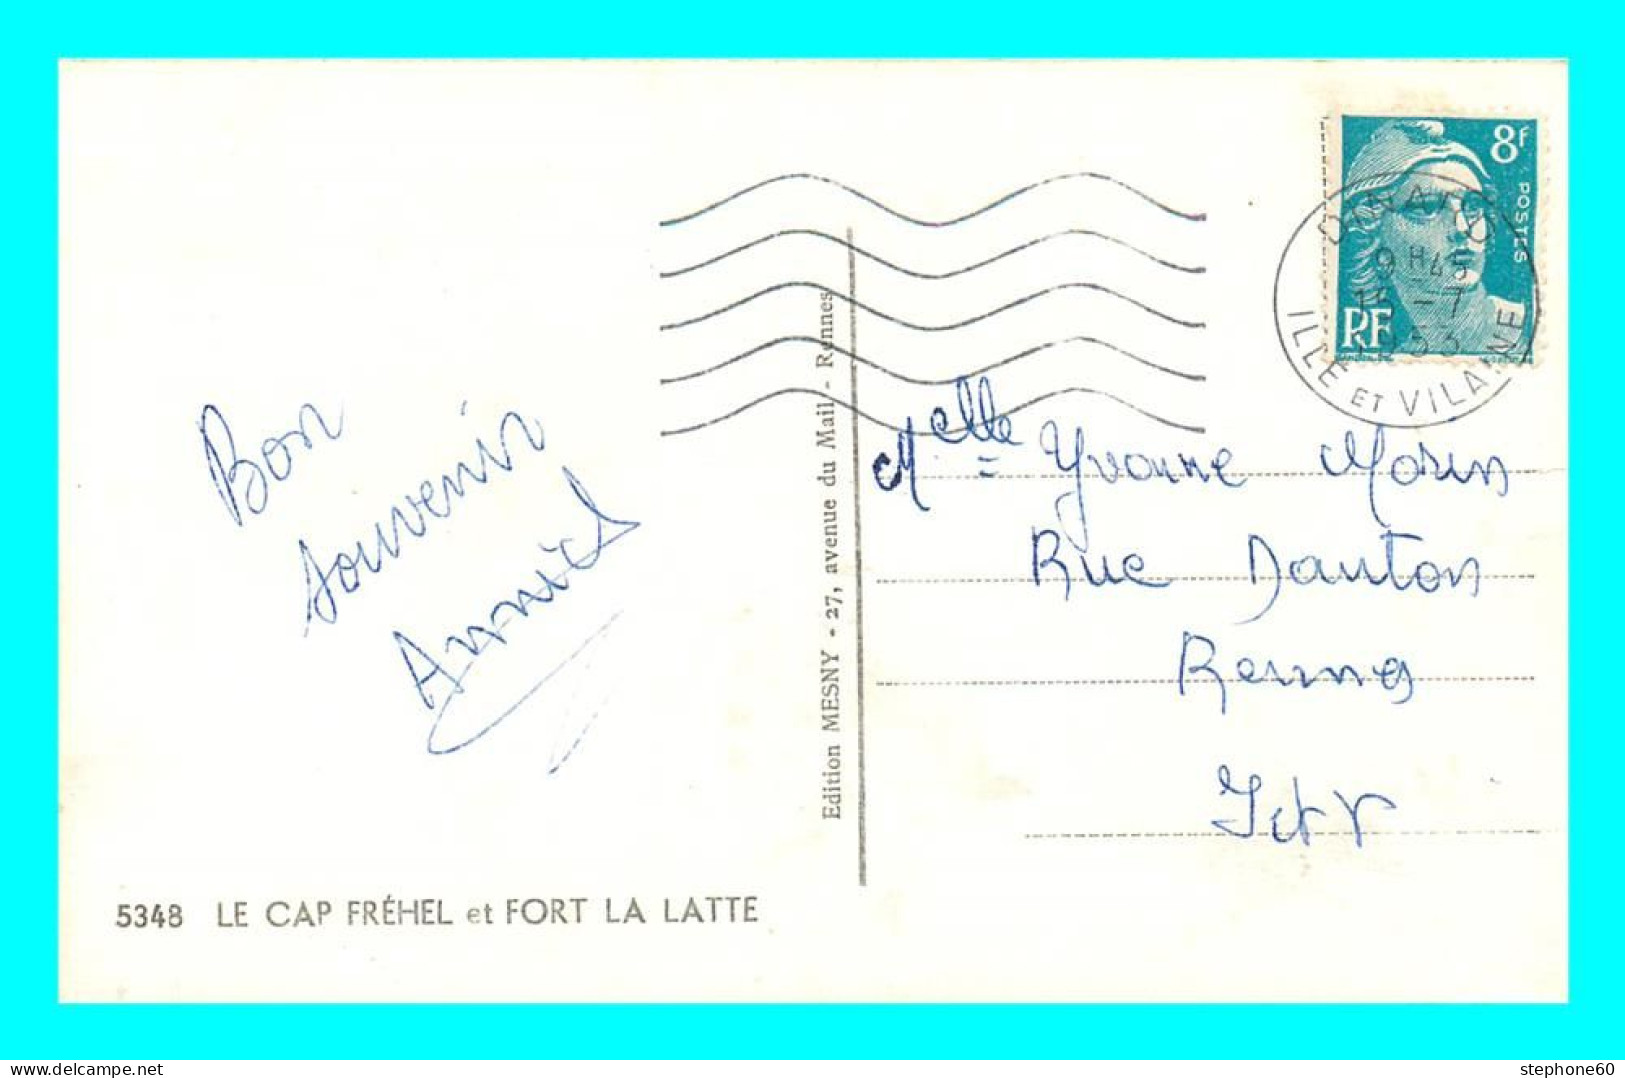 8f
POSTES
RF
9H45
15-7
1953
ILLE ET VILAINE
Bon
souvenir
Edition MESNY - 27, avenue du Mail - Rennes
Melle Yvonne Morin
Rue Danton
Rennes
I et V
5348 LE CAP FRÉHEL et FORT LA LATTE
stephone60